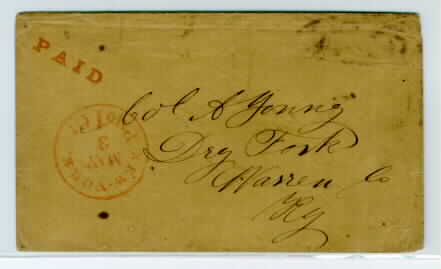 PAID
NEW-YORK
MAY
3
Col A Young
Dry Fork
Warren Co
Ky